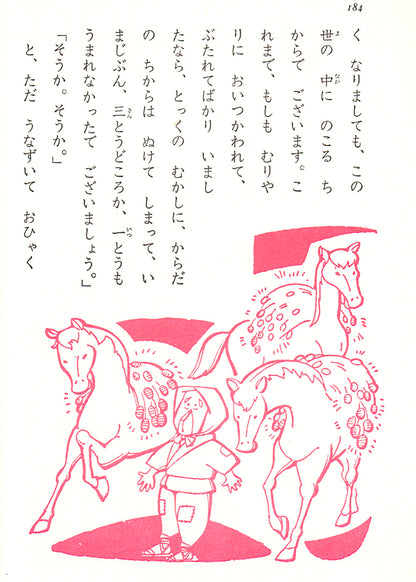 184
く なりましても、この
世の 中に のこる ち
からで ございます。こ
れまで、もしも むりや
りに おいつかわれて、
ぶたれてばかり いまし
たなら、とっくの むかしに、からだ
の ちからは ぬけて しまって、い
まじぶん、三とうどころか、一とうも
うまれなかったで ございましょう。」
「そうか。そうか。」
と、ただ うなずいて おひゃく